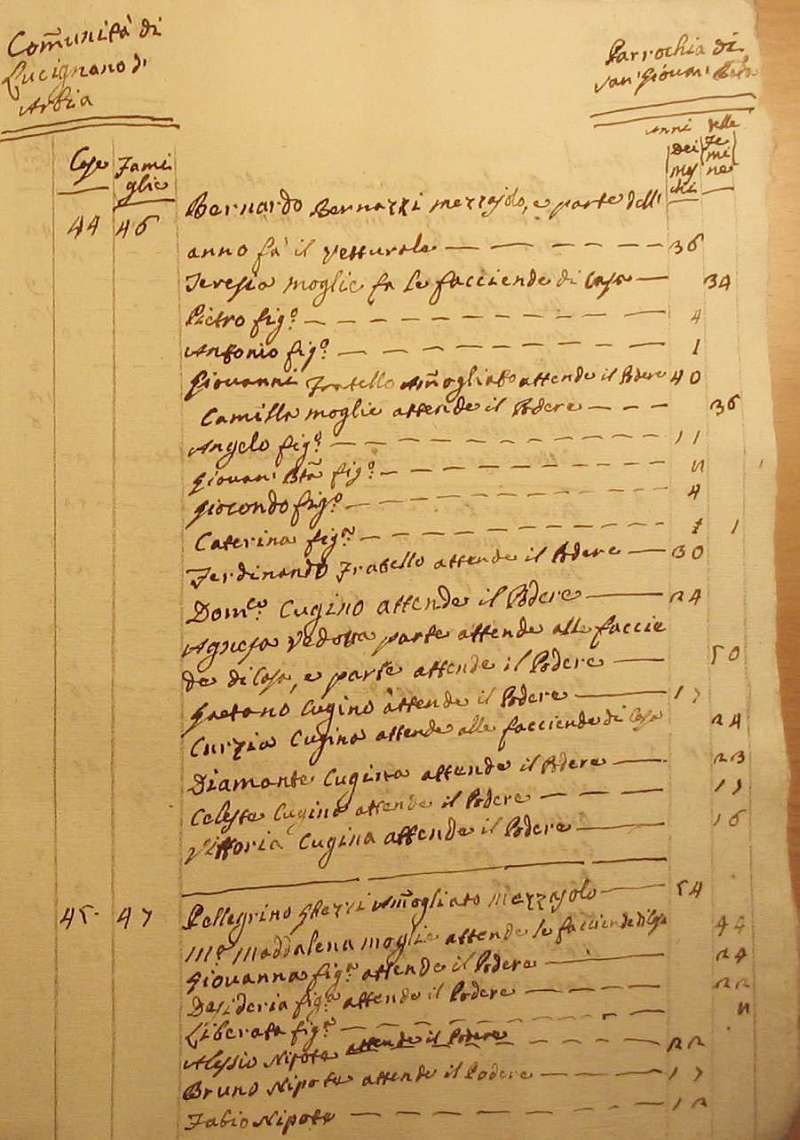 Com̃unità di
Lucignano d'
Arbia
Parrochia di
San' Giovan' Bta
Anni
delle
dei Fe
Ma mi
schi ne
Case Fami
glie
44 46 Bernardo Bernazzi mezzajolo, e parte dell'
anno fà il Vetturale 36
Teresia moglie fa le facciende di Casa 34
Pietro fig.o 4
Antonio fig.o 1
Giovanni Fratello Am̃ogliato attende il Podere 40
Camilla moglie attende il Podere 36
Angelo fig.o 11
Giovan' Bta fig.o
Giocondo fig.o 4
Caterina fig.a 1 1
Ferdinando Fratello attende il Podere 30
Dom.co Cugino attende il Podere 24
Agnesa Vedova parte attende alle faccie
de di Casa, e parte attende il Podere 50
Gaetano Cugino attende il Podere 17
Curzia Cugina attende alle facciende di Casa 24
Diamante Cugina attende il Podere 23
Celeste Cugina attende il Podere 17
Vittoria Cugina attende il Podere 16
45 47 Pellegrino Ghezzi Am̃ogliato Mezzajolo 54
M.a Maddalena moglie attende le facciende di Casa 44
Giovanna fig.a attende il Podere 24
Desideria fig.a attende il Podere 22
Liberata fig.a
Alessio Nipote attende il Podere 22
Bruno Nipote attende il Podere 17
Fabio Nipote 12